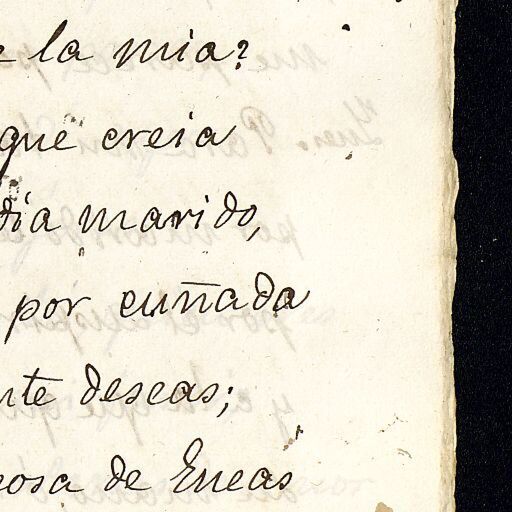 la mia?
que creia
dia marido,
por cuñada
nte deseas;
osa de Eneas